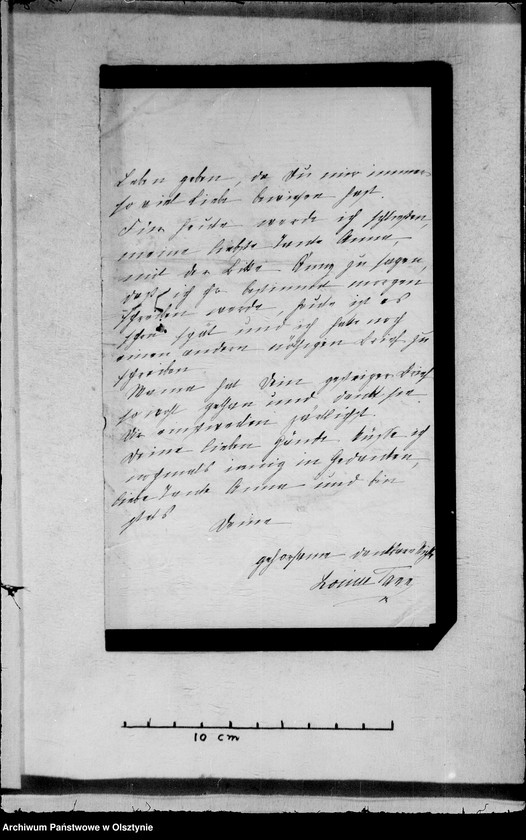 Leben geben, da Du mir immer
so viel Liebe bewiesen hast.
Für heute werde ich schließen,
meine liebste Tante Anna,
mit der Bitte Änny zu sagen,
daß ich ihr bestimmt morgen
schreiben werde heute ist es
schon spät und ich habe noch
einen andern nöthigen Brief zu
schreiben.
Mama hat Dein gestriger Brief
so wohl gethan und dankt sie
Dir einstweilen zärtlichst.
Deine lieben Hände küsse ich
nochmals innig in Gedanken,
liebe Tante Anna und bin
stets
Deine
gehorsame dankbare
10 cm
Archiwum Państwowe w Olsztynie